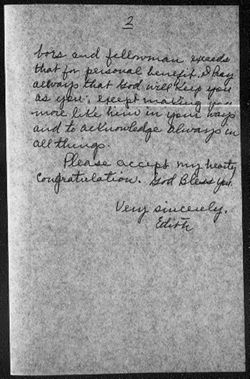 2
bors and fellowman exceeds
that for personal benefit. I Pray
always that God will keep you
as you, except making you
more like him in your ways
and to acknowledge always in
all things.
Please accept my hearty
congratulation. God Bless you.
Very sincerely,
Edith